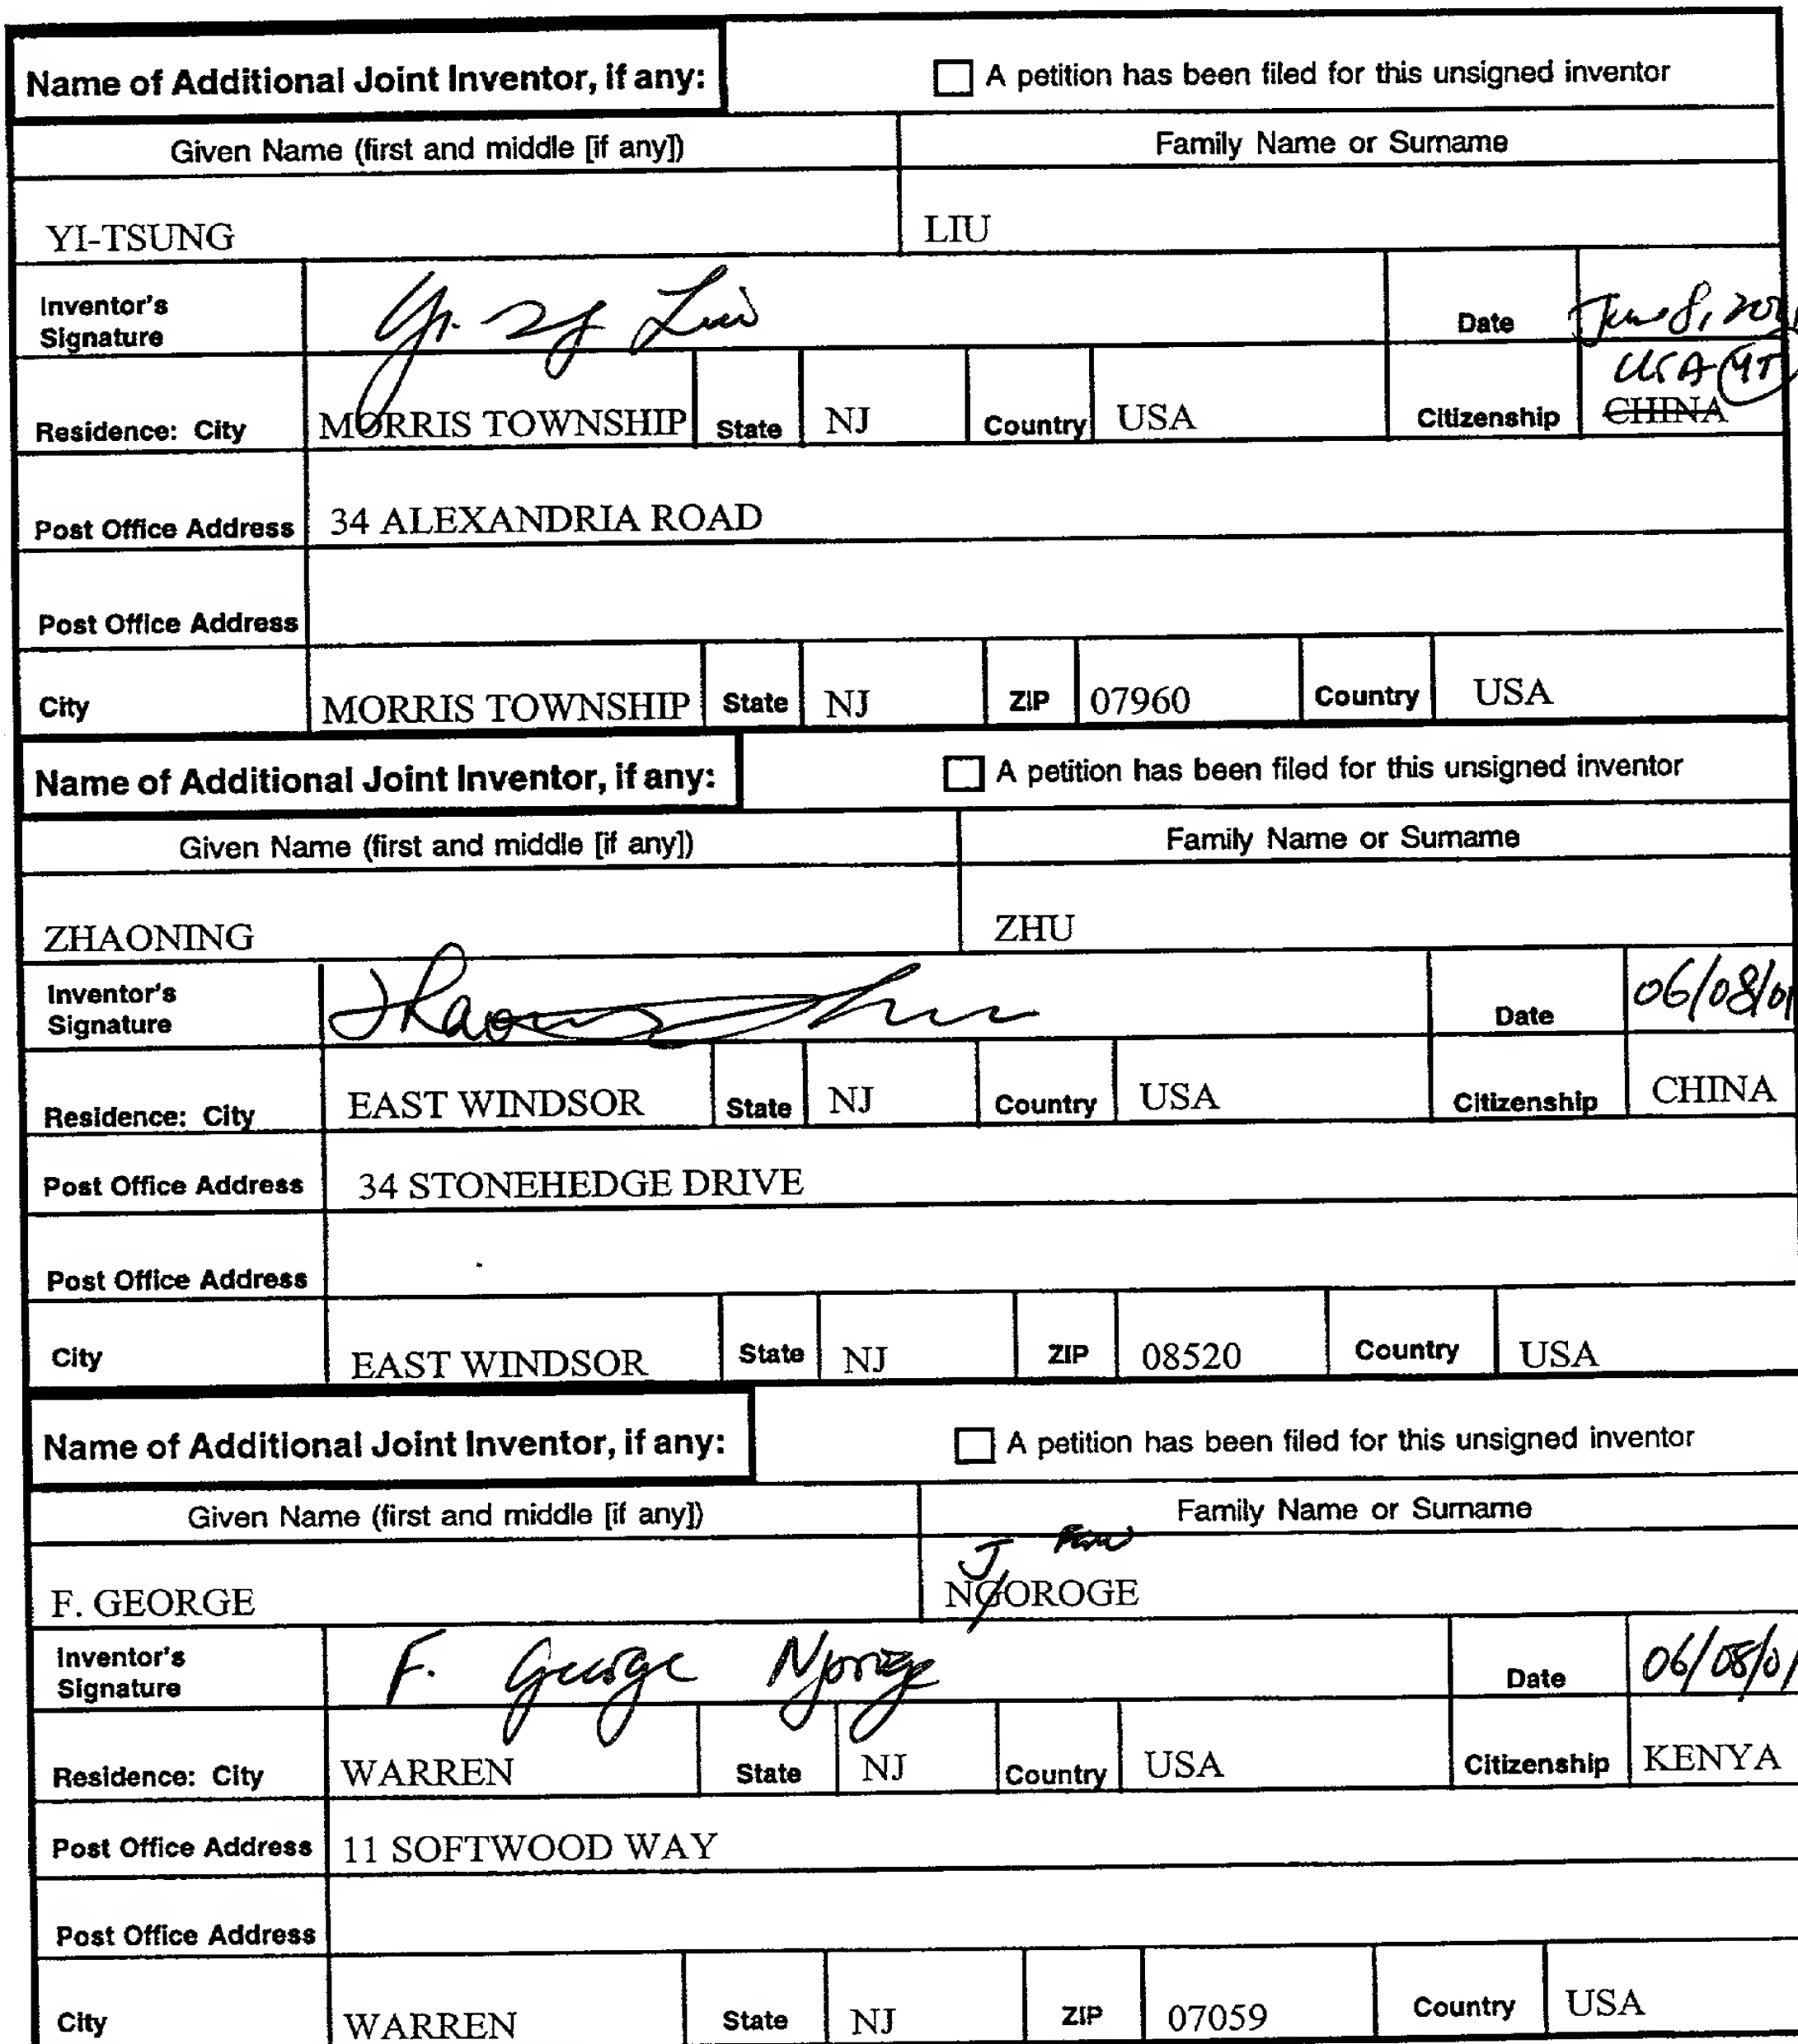 Name of Additional Joint Inventor, if any: A petition has been filed for this unsigned inventor
Given Name (first and middle [if any]) Family Name or Surname
YI-TSUNG LIU
Inventor's Signature Liu Date June 8, 2001
USA YT
Residence: City MORRIS TOWNSHIP State NJ Country USA Citizenship CHINA
Post Office Address 34 ALEXANDRIA ROAD
Post Office Address
City MORRIS TOWNSHIP State NJ ZIP 07960 Country USA
Name of Additional Joint Inventor, if any: A petition has been filed for this unsigned inventor
Given Name (first and middle [if any]) Family Name or Surname
ZHAONING ZHU
Inventor's Signature Date 06/08/01
Residence: City EAST WINDSOR State NJ Country USA Citizenship CHINA
Post Office Address 34 STONEHEDGE DRIVE
Post Office Address
City EAST WINDSOR State NJ ZIP 08520 Country USA
Name of Additional Joint Inventor, if any: A petition has been filed for this unsigned inventor
Given Name (first and middle [if any]) Family Name or Surname
J
F. GEORGE NGOROGE
Inventor's Signature F. George Njoroge Date 06/08/01
Residence: City WARREN State NJ Country USA Citizenship KENYA
Post Office Address 11 SOFTWOOD WAY
Post Office Address
City WARREN State NJ ZIP 07059 Country USA